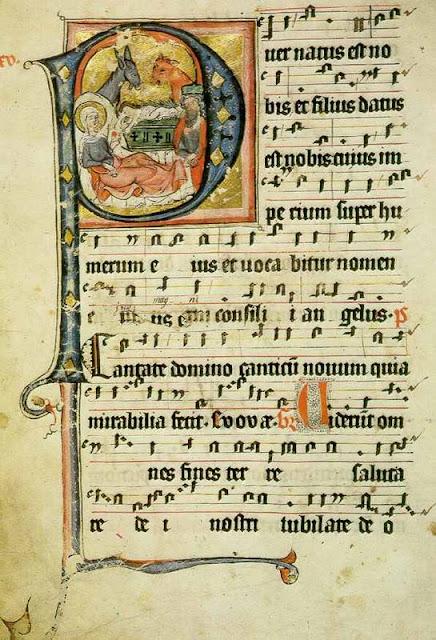 Puer natus est no
bis et filius datus
est nobis cuius im
pe rium super hu
merum e ius et uoca bitur nomen
e ius consili i an gelus · p
Cantate domino canticū nouum quia
mirabilia fecit · Euouae · Gr Viderūt om
nes fines ter re saluta
re de i nostri iubilate de o